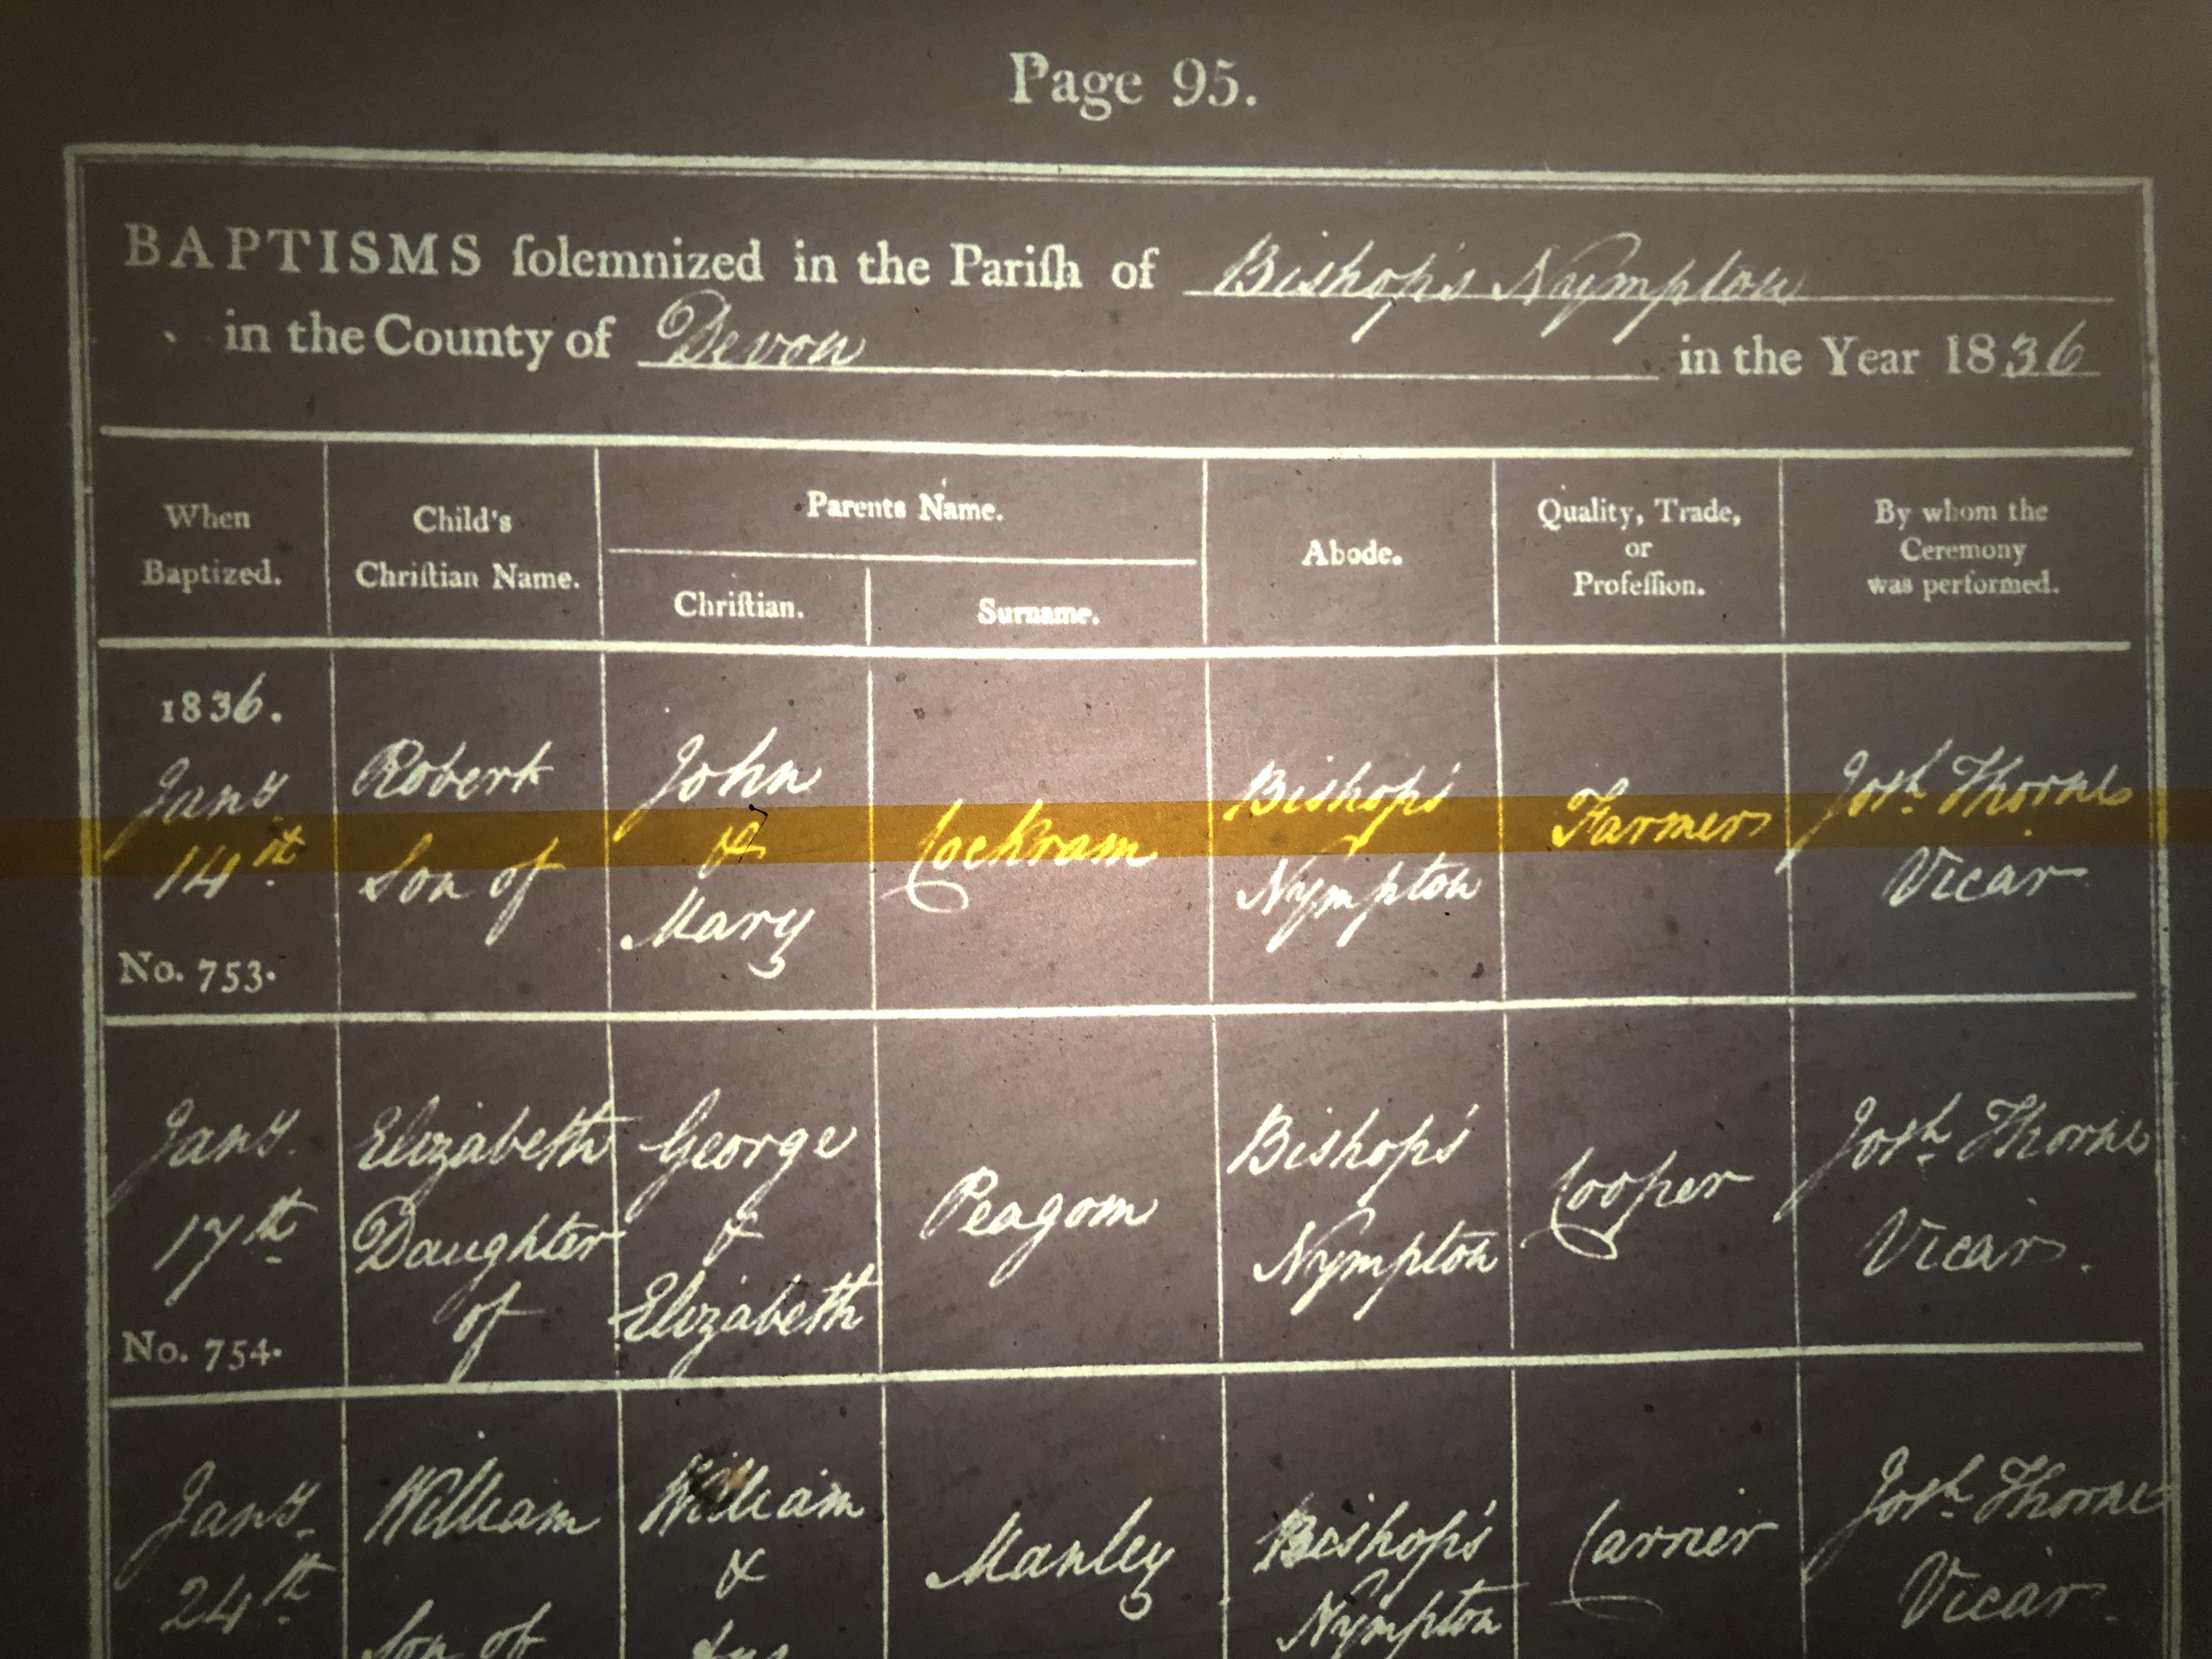 Page 95.
BAPTISMS ſolemnized in the Pariſh of Bishop's Nympton
in the County of Devon in the Year 1836
When Baptized.
Child's Chriſtian Name.
Parents Name.
Chriſtian.
Surname.
Abode.
Quality, Trade, or Profeſſion.
By whom the Ceremony was performed.
1836.
Jany 14th
No. 753.
Robert
Son of
John
&
Mary
Cockram
Bishop's
Nympton
Farmer
Josh Thorne
Vicar
Jany.
17th
No. 754.
Elizabeth
Daughter
of
George
&
Elizabeth
Peagom
Bishop's
Nympton
Cooper
Josh Thorne
Vicar.
Jany.
24th
William
Son of
William
&
Manley
Bishop's
Nympton
Carrier
Josh Thorne
Vicar.